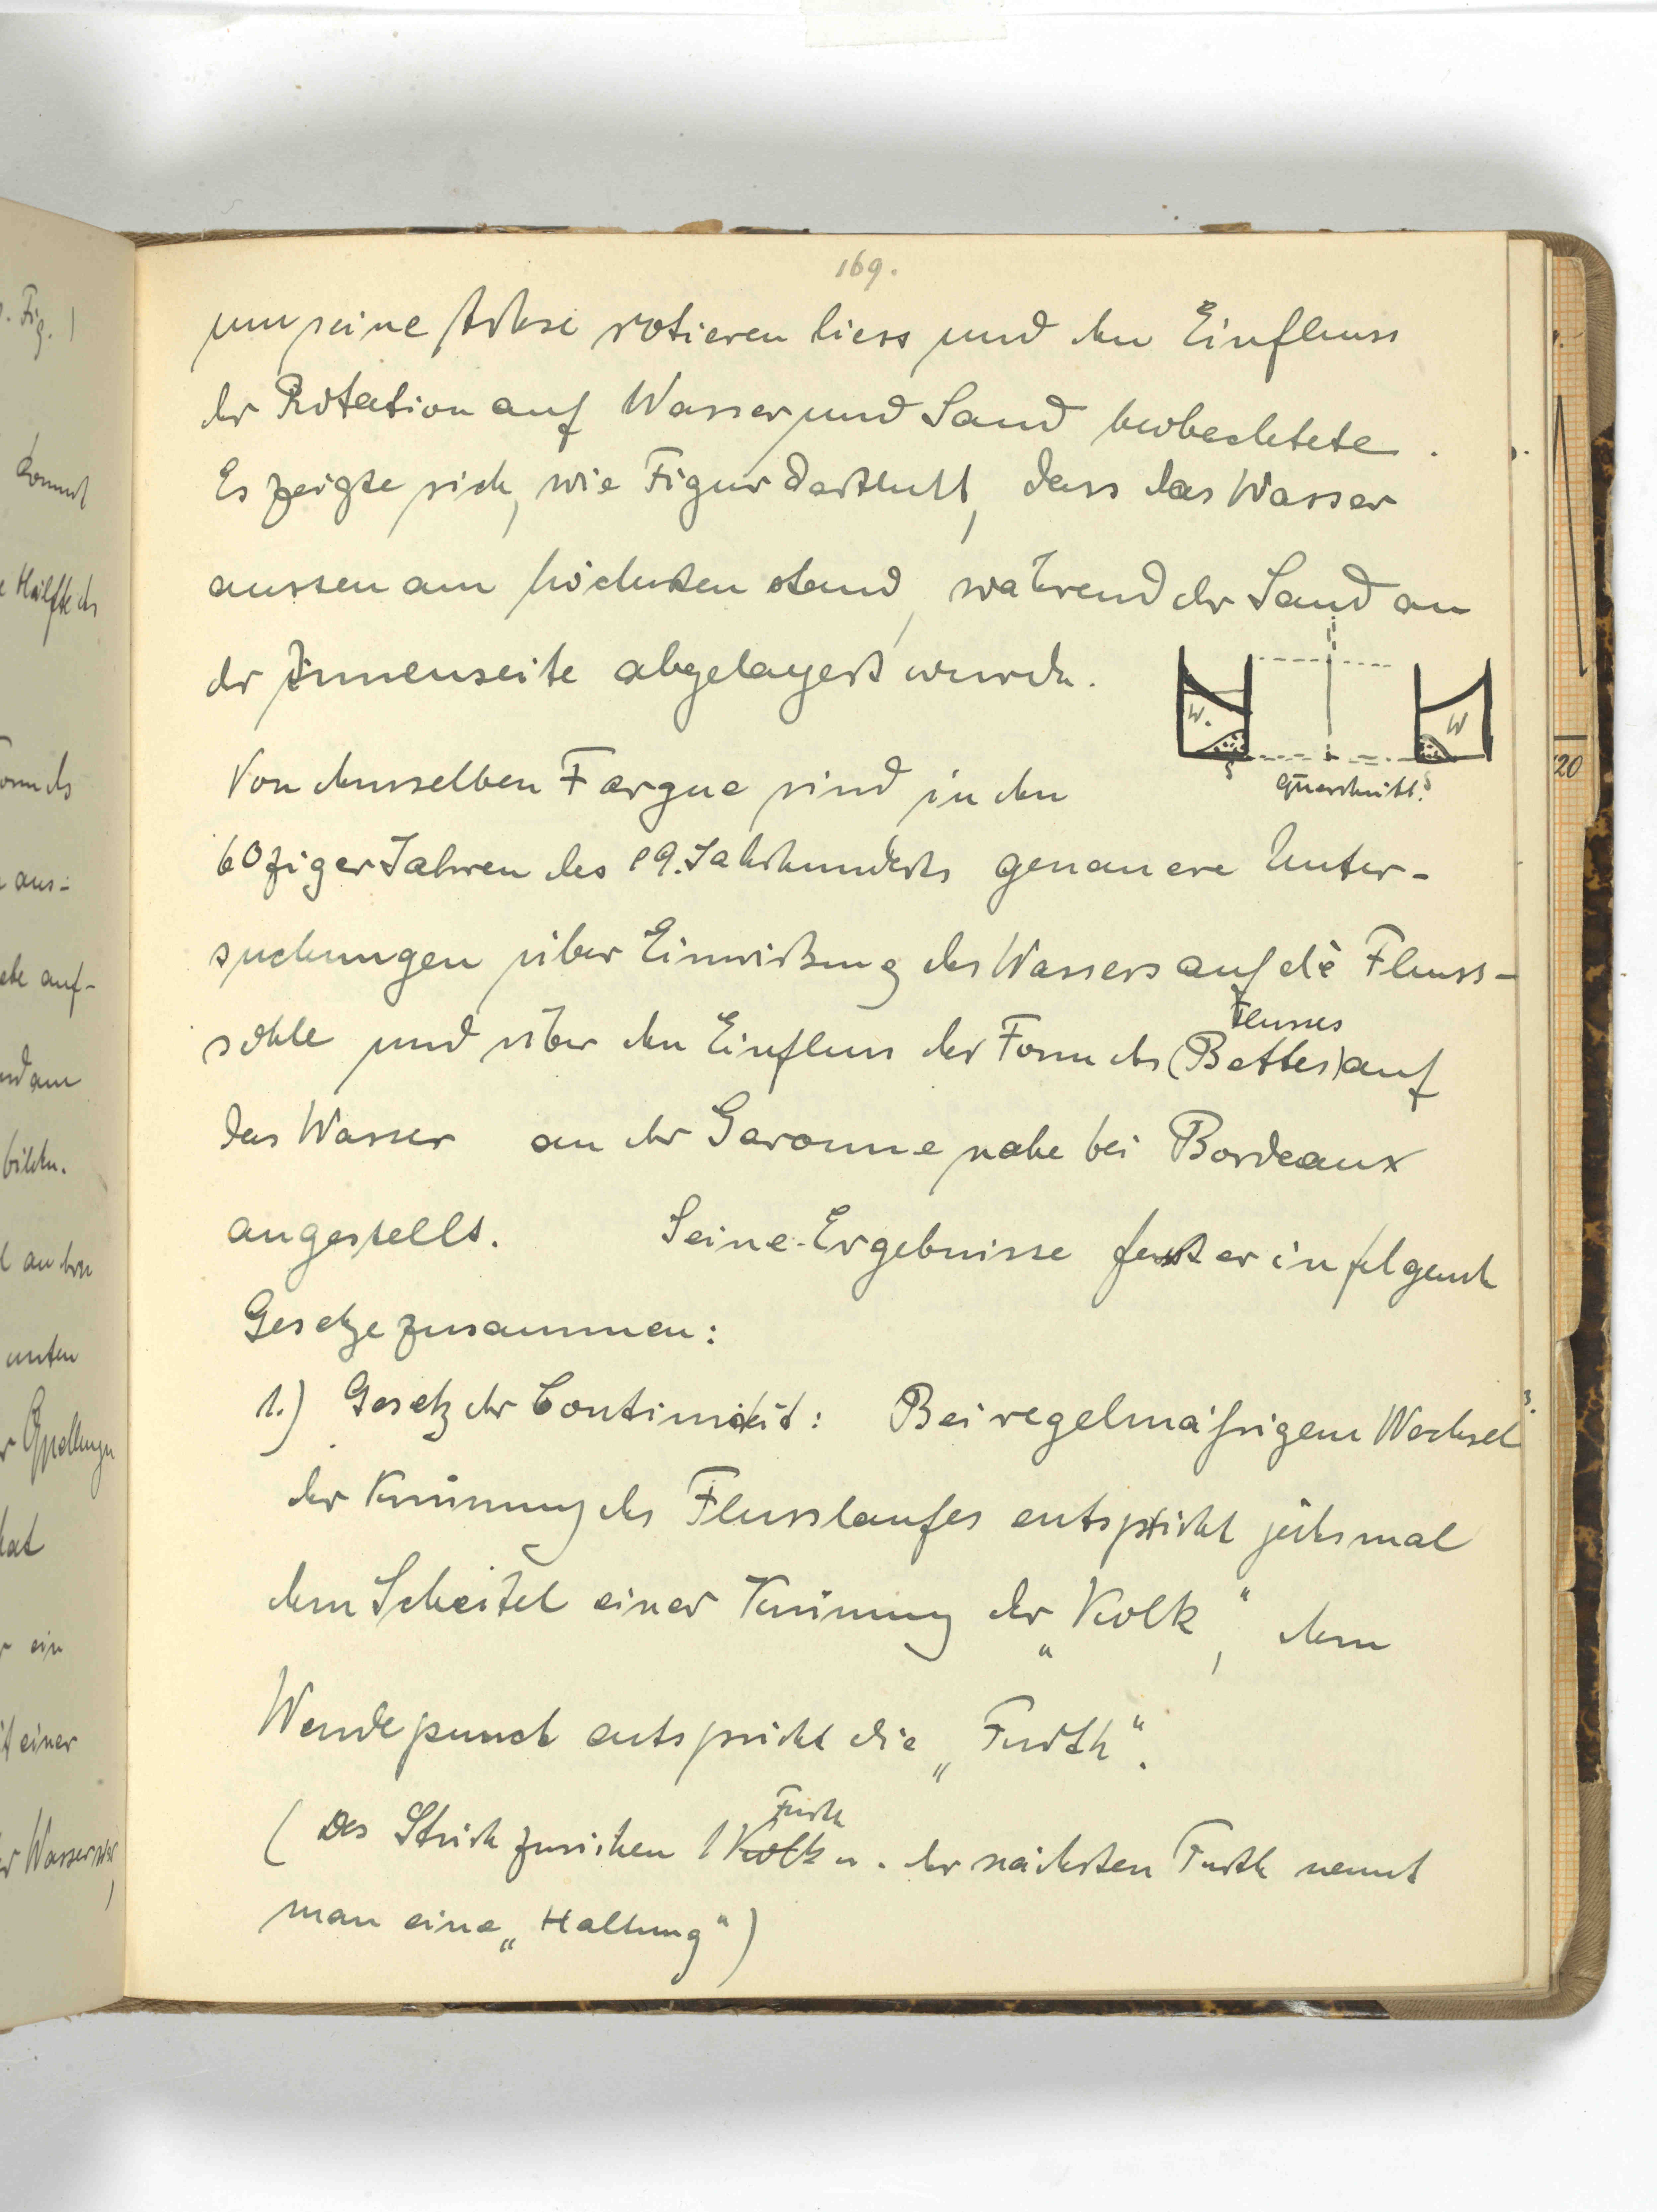 169.
um seine Achse rotieren liess und den Einfluss
der Rotation auf Wasser und Sand beobachtete.
Es zeigte sich, wie Figur darthut, dass das Wasser
aussen am höchsten stand, während der Sand an
der Innenseite abgelagert wurde.
W.
W
S
S
Querschnitt.
Von demselben Fargue sind in den
60ziger Jahren des 19. Jahrhunderts genauere Unter-
suchungen über Einwirkung des Wassers auf die Fluss-
Flusses
sohle und über den Einfluss der Form des (Bettes) auf
das Wasser an der Garonne nahe bei Bordeaux
angestellt. Seine Ergebnisse fasst er in folgende
Gesetze zusammen:
1.) Gesetz der Continuität: Bei regelmäßigem Wechsel
der Krümmung des Flusslaufes entspricht jedesmal
dem Scheitel einer Krümmung der „Kolk“, dem
Wendepunct entspricht die „Furth“.
Furth
(Das Stück zwischen 1 Kolk u. der nächsten Furth nennt
man eine „Haltung“)
. Fig. 1
kommt
e Hälfte des
aus-
auf-
bilden.
unten
hat
ein
einer
20